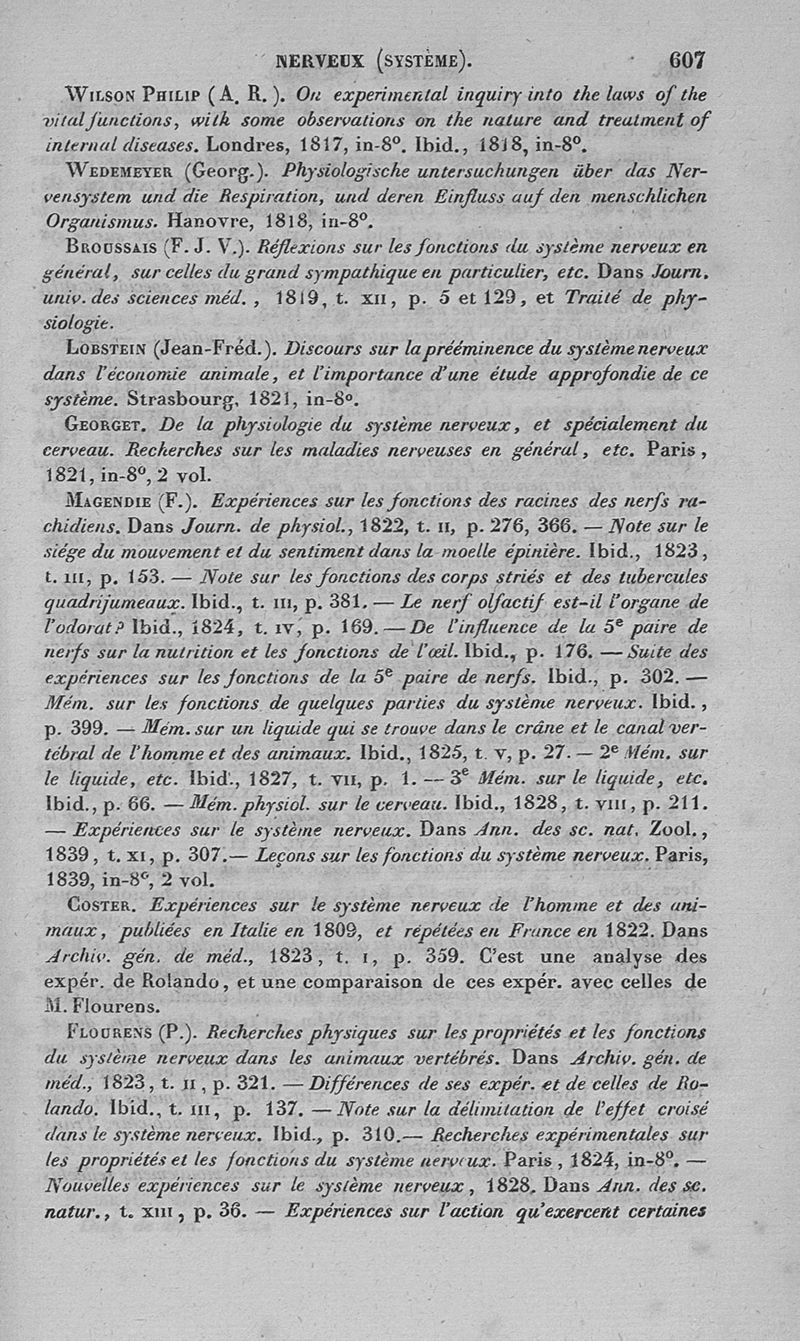 NERVEUX (SYSTÈME). 607
WILSON PHILIP (A. R.). On experimental inquiry into the laws of the
vital functions, with some observations on the nature and treatment of
internal diseases. Londres, 1817, in-8°. Ibid., 1818, in-8°.
WEDEMEYER (Georg.). Physiologische untersuchungen über das Ner-
vensystem und die Respiration, und deren Einfluss auf den menschlichen
Organismus. Hanovre, 1818, in-8°.
BROUSSAIS (F. J. V.). Réflexions sur les fonctions du système nerveux en
général, sur celles du grand sympathique en particulier, etc. Dans Journ.
univ. des sciences méd., 1819, t. XII, p. 5 et 129, et Traité de phy-
siologie.
LOBSTEIN (Jean-Fréd.). Discours sur la prééminence du système nerveux
dans l'économie animale, et l'importance d'une étude approfondie de ce
système. Strasbourg, 1821, in-8°.
GEORGET. De la physiologie du système nerveux, et spécialement du
cerveau. Recherches sur les maladies nerveuses en général, etc. Paris,
1821, in-8°, 2 vol.
MAGENDIE (F.). Expériences sur les fonctions des racines des nerfs ra-
chidiens. Dans Journ. de physiol., 1822, t. II, p. 276, 366. — Note sur le
siége du mouvement et du sentiment dans la moelle épinière. Ibid., 1823,
t. III, p. 153. — Note sur les fonctions des corps striés et des tubercules
quadrijumeaux. Ibid., t. III, p. 381. — Le nerf olfactif est-il l'organe de
l'odorat? Ibid., 1824, t. IV, p. 169. — De l'influence de la 5e paire de
nerfs sur la nutrition et les fonctions de l'œil. Ibid., p. 176. — Suite des
expériences sur les fonctions de la 5e paire de nerfs. Ibid., p. 302. —
Mém. sur les fonctions de quelques parties du système nerveux. Ibid.,
p. 399. — Mém. sur un liquide qui se trouve dans le crâne et le canal ver-
tébral de l'homme et des animaux. Ibid., 1825, t. V, p. 27. — 2e Mém. sur
le liquide, etc. Ibid., 1827, t. VII, p. 1. — 3e Mém. sur le liquide, etc.
Ibid., p. 66. — Mém. physiol. sur le cerveau. Ibid., 1828, t. VIII, p. 211.
— Expériences sur le système nerveux. Dans Ann. des sc. nat. Zool.,
1839, t. XI, p. 307. — Leçons sur les fonctions du système nerveux. Paris,
1839, in-8°, 2 vol.
COSTER. Expériences sur le système nerveux de l'homme et des ani-
maux, publiées en Italie en 1809, et répétées en France en 1822. Dans
Archiv. gén. de méd., 1823, t. I, p. 359. C'est une analyse des
expér. de Rolando, et une comparaison de ces expér. avec celles de
M. Flourens.
FLOURENS (P.). Recherches physiques sur les propriétés et les fonctions
du système nerveux dans les animaux vertébrés. Dans Archiv. gén. de
méd., 1823, t. II, p. 321. — Différences de ses expér. et de celles de Ro-
lando. Ibid., t. III, p. 137. — Note sur la délimitation de l'effet croisé
dans le système nerveux. Ibid., p. 310. — Recherches expérimentales sur
les propriétés et les fonctions du système nerveux. Paris, 1824, in-8°. —
Nouvelles expériences sur le système nerveux, 1828. Dans Ann. des sc.
natur., t. XIII, p. 36. — Expériences sur l'action qu'exercent certaines